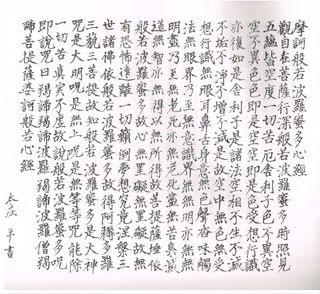 摩訶般若波羅蜜多心經
觀自在菩薩行深般若波羅蜜多時照見
五蘊皆空度一切苦厄舍利子色不異空
空不異色色即是空空即是色受想行識
亦復如是舍利子是諸法空相不生不滅
不垢不淨不增不減是故空中無色無受
想行識無眼耳鼻舌身意無色聲香味觸
法無眼界乃至無意識界無無明亦無無
明盡乃至無老死亦無老死盡無苦集滅
道無智亦無得以無所得故菩提薩埵依
般若波羅蜜多故心無罣礙無罣礙故無
有恐怖遠離一切顛倒夢想究竟涅槃三
世諸佛依般若波羅蜜多故得阿耨多羅
三藐三菩提故知般若波羅蜜多是大神
咒是大明咒是無上咒是無等等咒能除
一切苦真実不虛故說般若波羅蜜多呪
即說呪曰羯諦羯諦波羅羯諦波羅僧羯
諦菩提薩婆訶般若心經